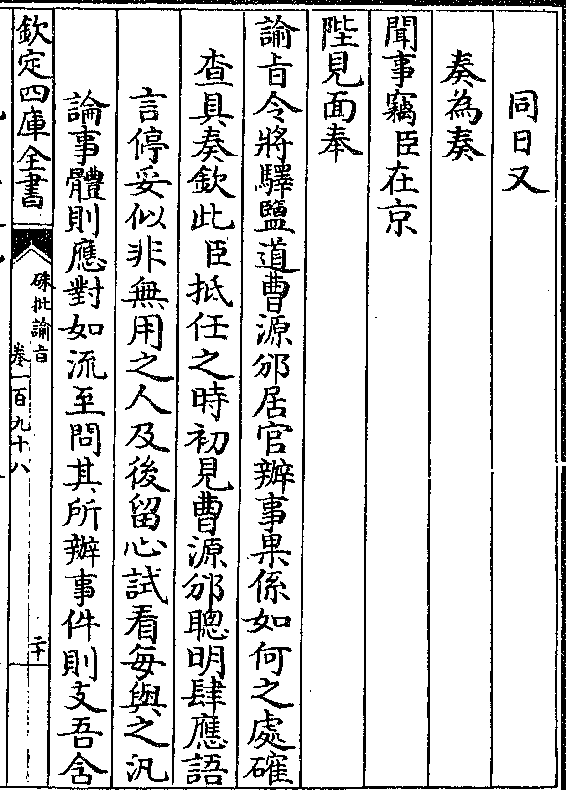 同日又
奏為奏
聞事竊臣在京
陛見面奉
諭㫖令將驛鹽道曹源邠居官辦事果係如何之處確
查具奏欽此臣抵任之時初見曹源邠聰明肆應語
言停妥似非無用之人及後留心試看每與之汎
論事體則應對如流至問其所辦事件則支吾含
欽定四庫全書
硃批諭㫖
卷一百九十八
二十